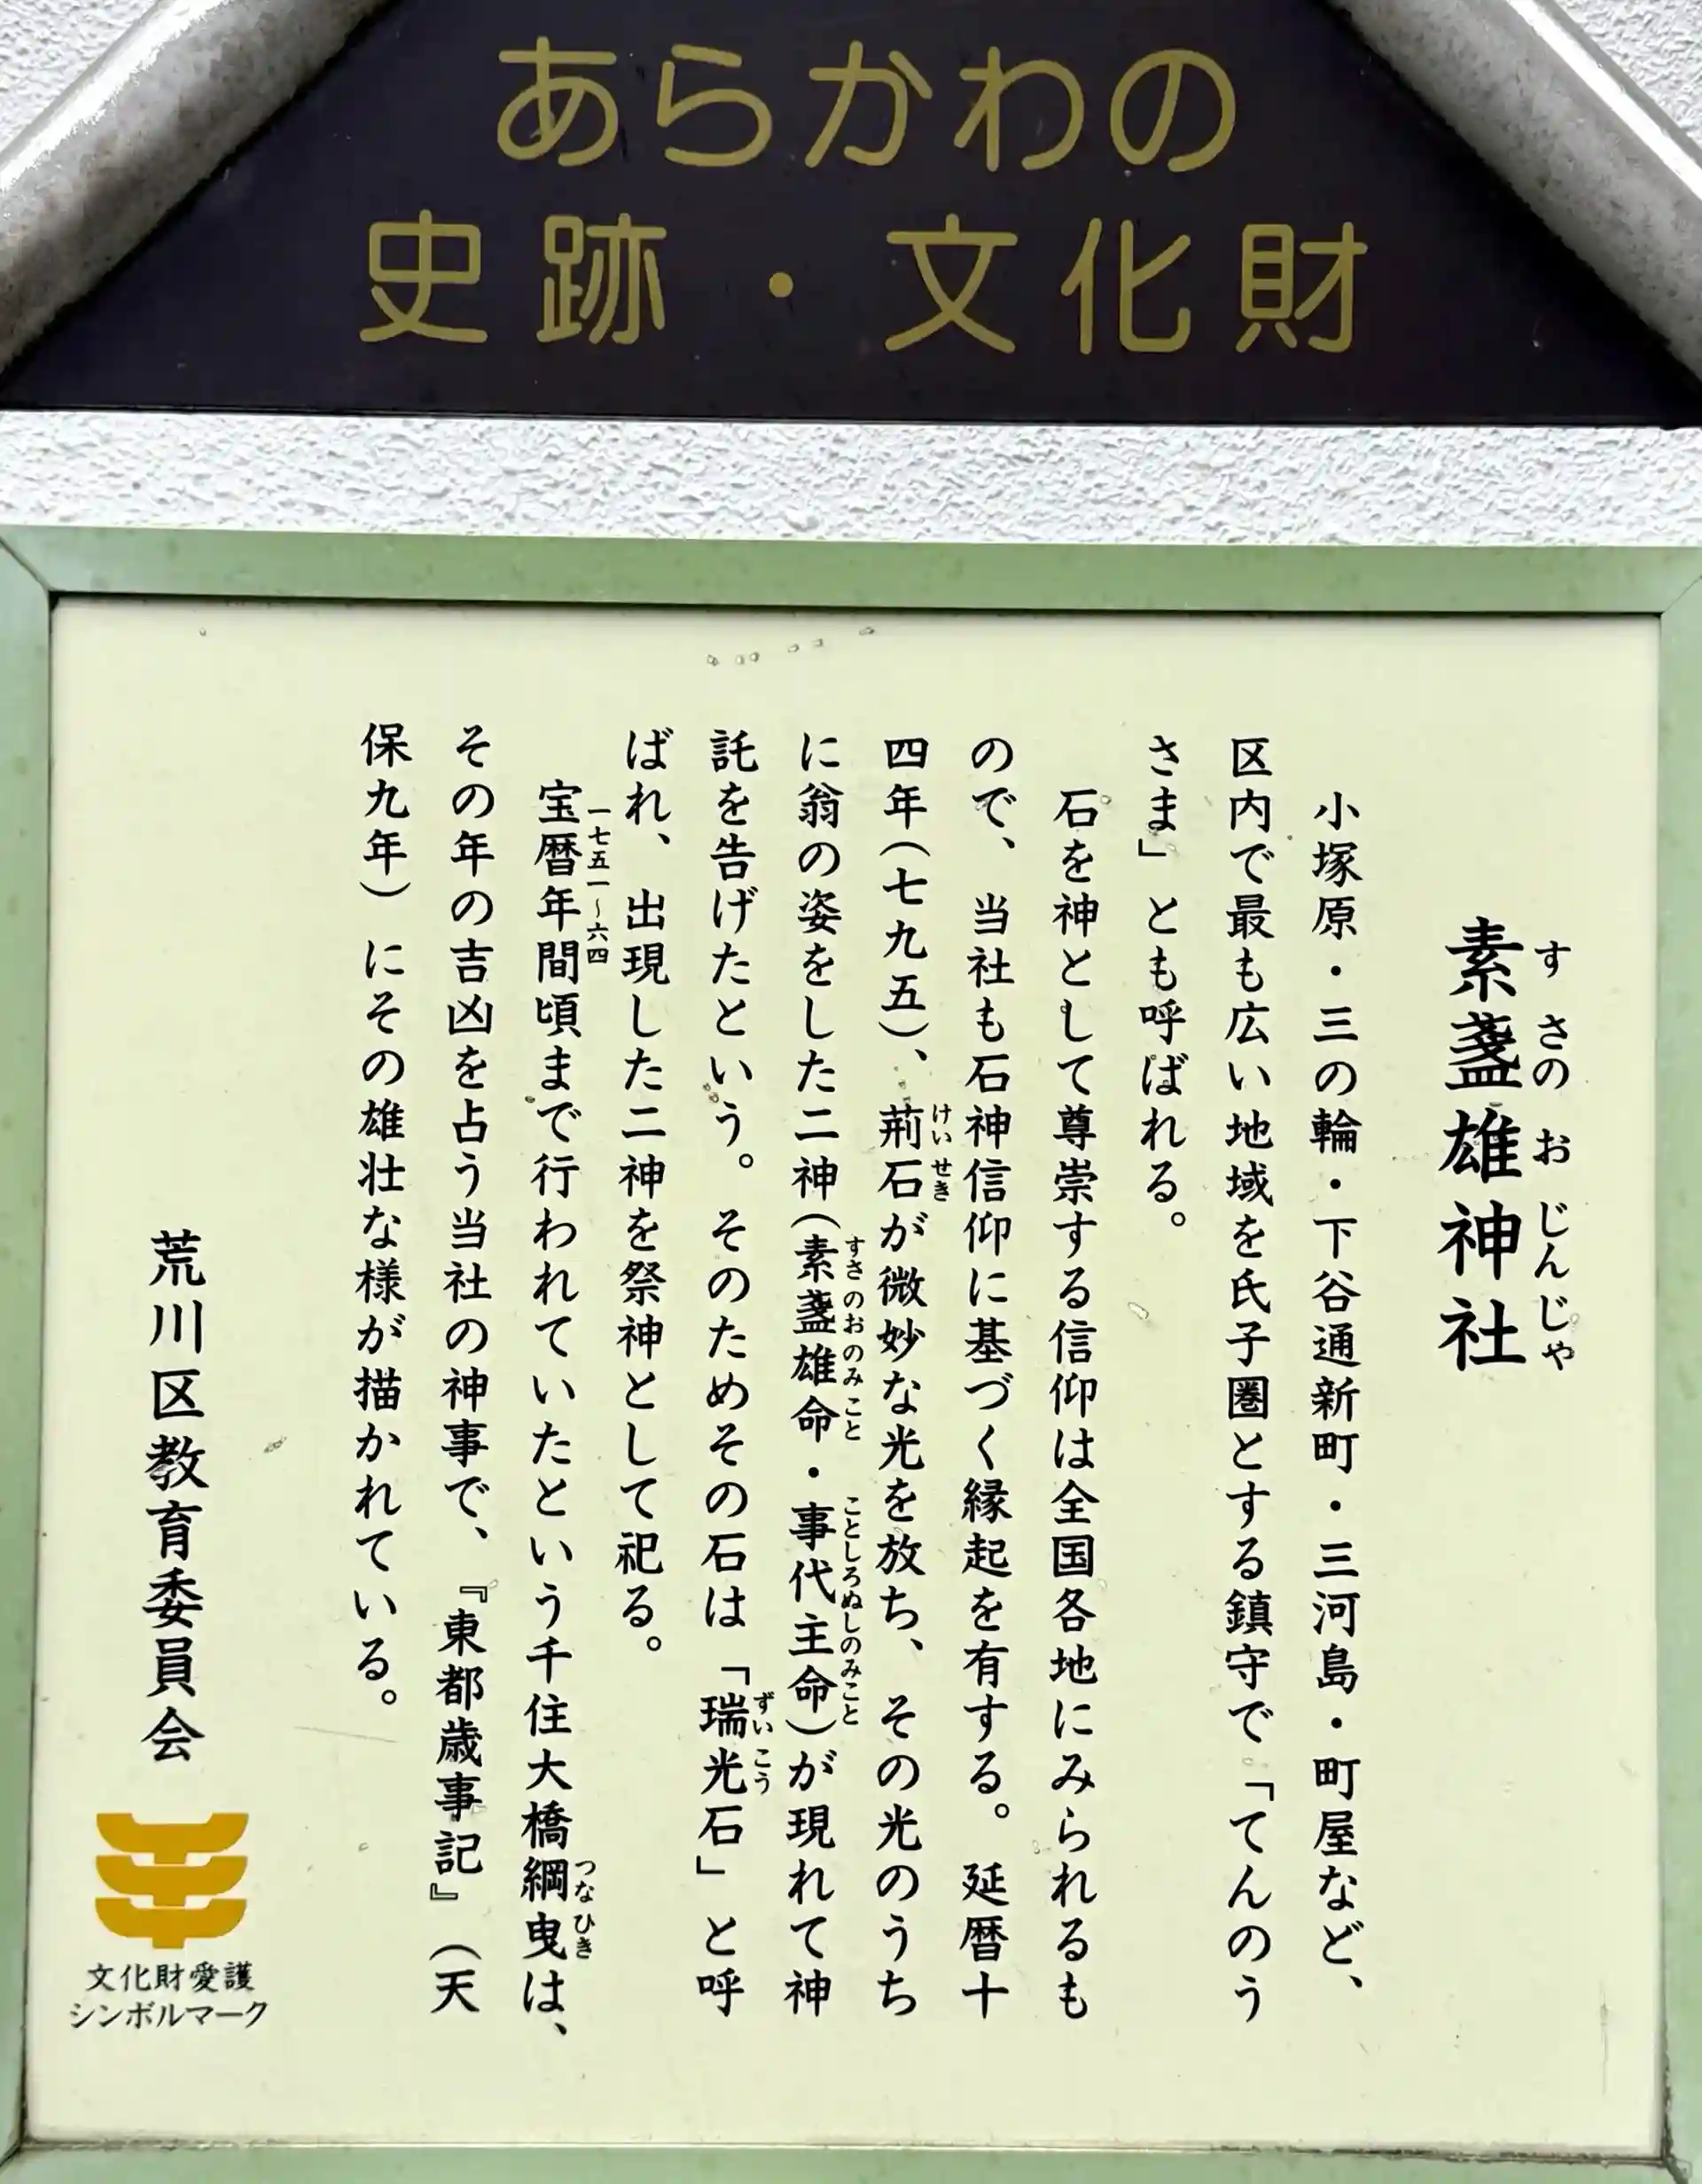 あらかわの
史跡・文化財
素盞雄神社
すさのおじんじゃ
小塚原・三の輪・下谷通新町・三河島・町屋など、
区内で最も広い地域を氏子圏とする鎮守で「てんのう
さま」とも呼ばれる。
石を神として尊崇する信仰は全国各地にみられるも
ので、当社も石神信仰に基づく縁起を有する。延暦十
四年(七九五)、荊石が微妙な光を放ち、その光のうち
けいせき
に翁の姿をした二神(素盞雄命・事代主命)が現れて神
すさのおのみこと ことしろぬしのみこと
託を告げたという。そのためその石は「瑞光石」と呼
ずいこう
ばれ、出現した二神を祭神として祀る。
宝暦年間頃まで行われていたという千住大橋綱曳は、
一七五一~六四 つなひき
その年の吉凶を占う当社の神事で、『東都歳事記』(天
保九年)にその雄壮な様が描かれている。
荒川区教育委員会
文化財愛護
シンボルマーク